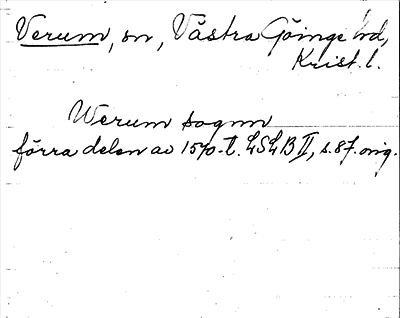 Verum, sn, Västra Göinge hd,
Krist. l.
Werum sognn
förra delen av 1570-t. LSLB II, s. 87. orig.